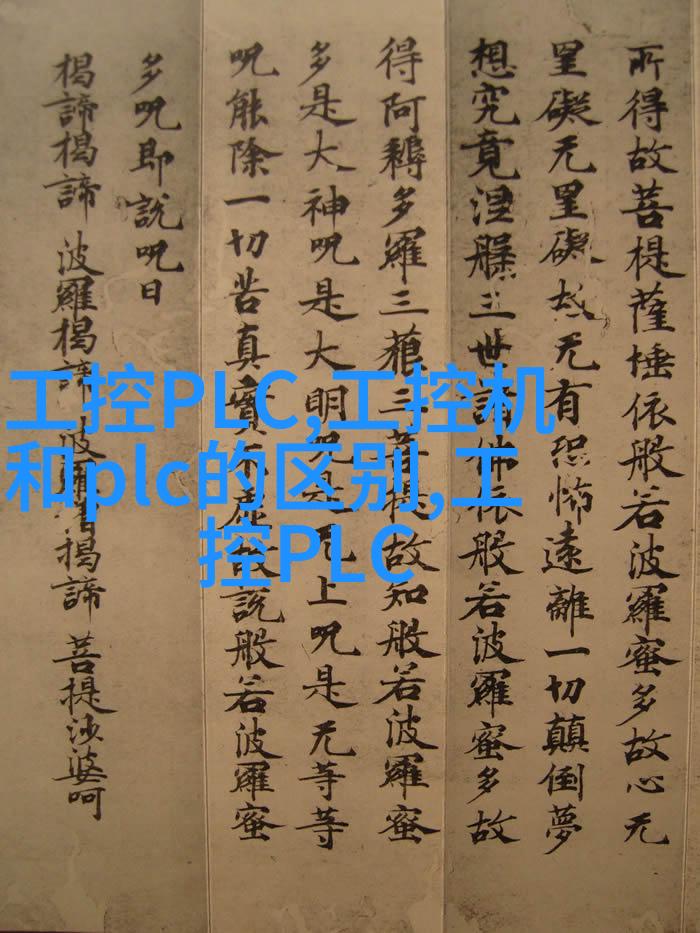 所得故菩提薩埵依般若波羅蜜多故心无
罣礙无罣礙故无有恐怖遠離一切顛倒夢
想究竟涅槃三世諸佛依般若波羅蜜多故
得阿耨多羅三藐三菩提故知般若波羅蜜
多是大神呪是大明呪是无上呪是无等等
呪能除一切苦真實不虛故說般若波羅蜜
多呪即說呪曰
揭諦揭諦 波羅揭諦 波羅僧揭諦 菩提沙婆呵
工控PLC,工控机
和plc的区别,工
控PLC